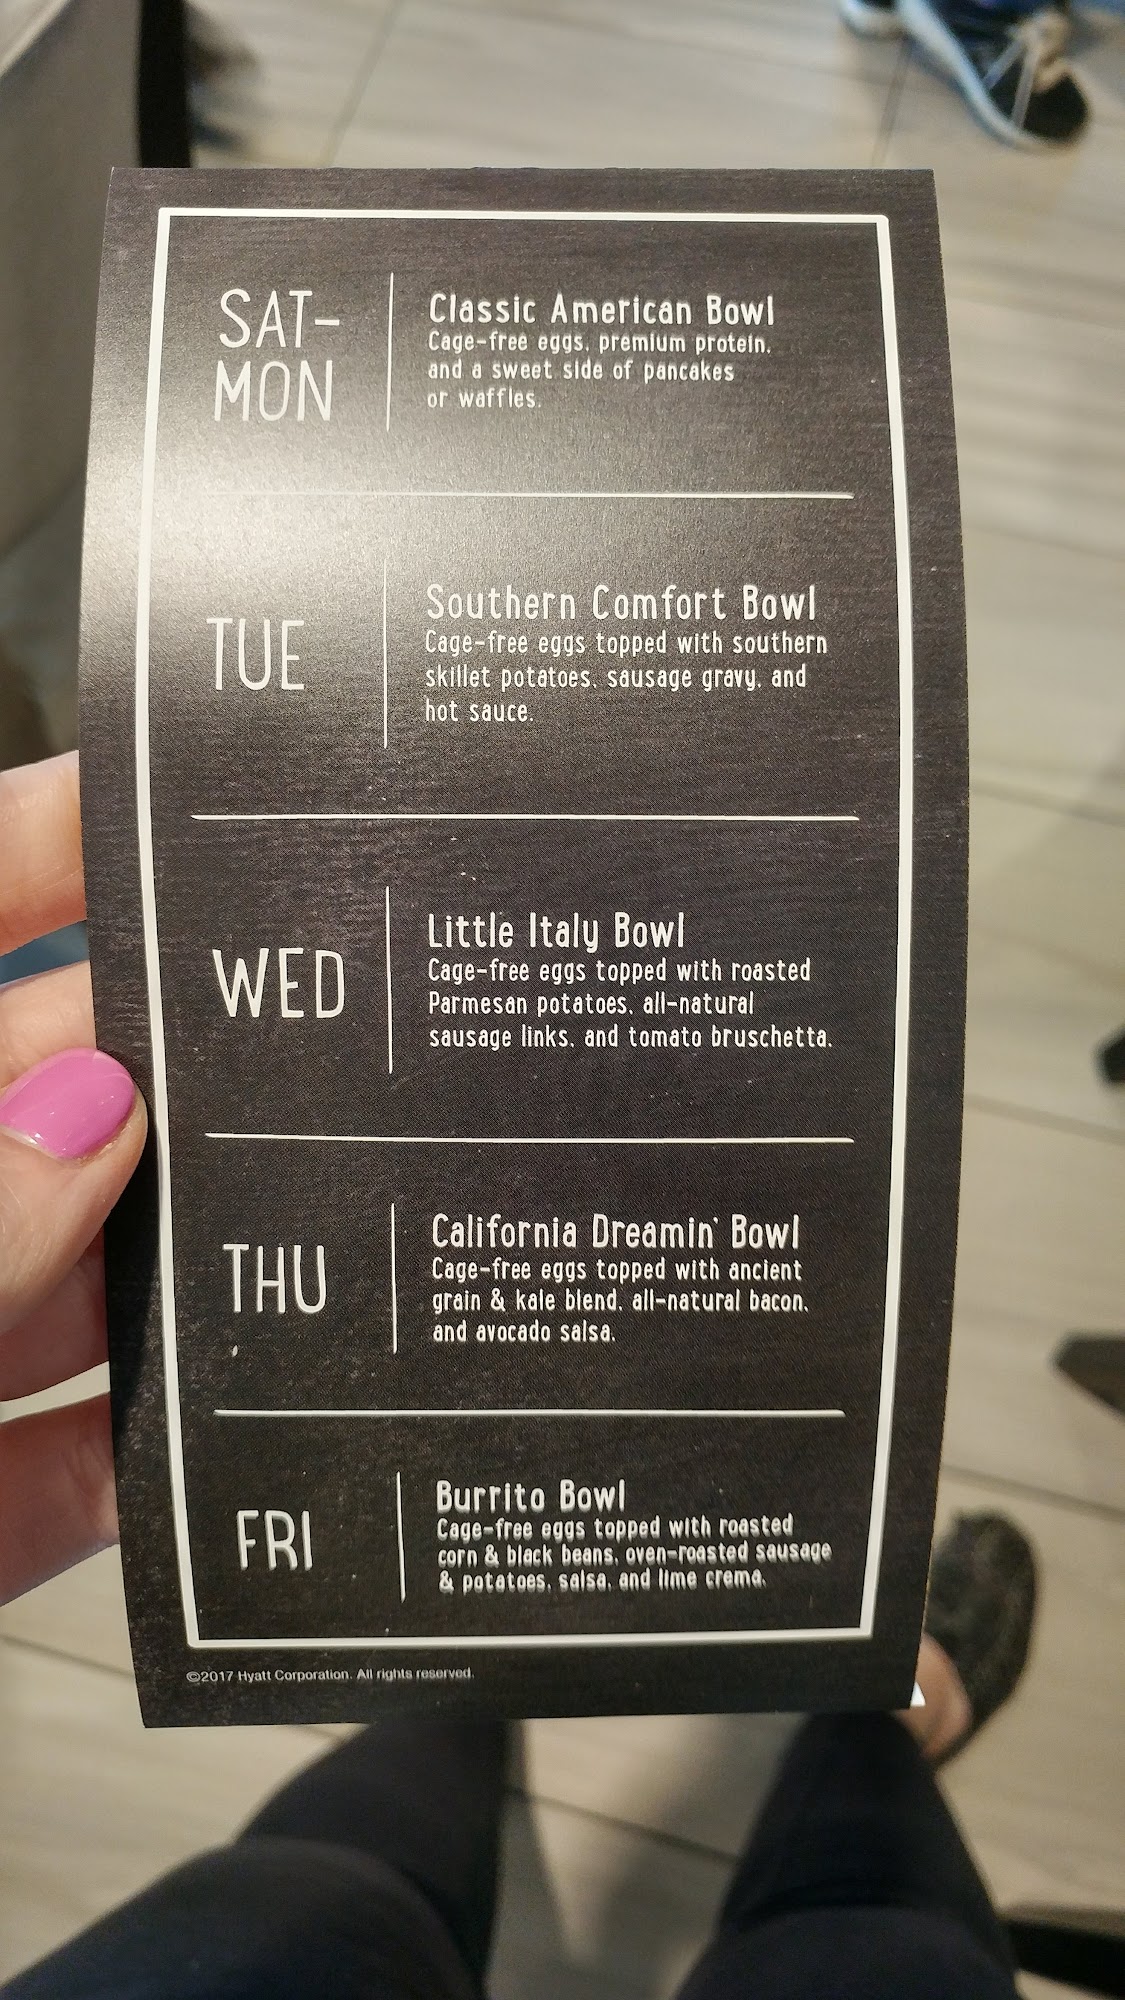 SAT-
MON
Classic American Bowl
Cage-free eggs, premium protein,
and a sweet side of pancakes
or waffles.
TUE
Southern Comfort Bowl
Cage-free eggs topped with southern
skillet potatoes, sausage gravy, and
hot sauce.
WED
Little Italy Bowl
Cage-free eggs topped with roasted
Parmesan potatoes, all-natural
sausage links, and tomato bruschetta.
THU
California Dreamin' Bowl
Cage-free eggs topped with ancient
grain & kale blend, all-natural bacon,
and avocado salsa.
FRI
Burrito Bowl
Cage-free eggs topped with roasted
corn & black beans, oven-roasted sausage
& potatoes, salsa, and lime crema.
©2017 Hyatt Corporation. All rights reserved.